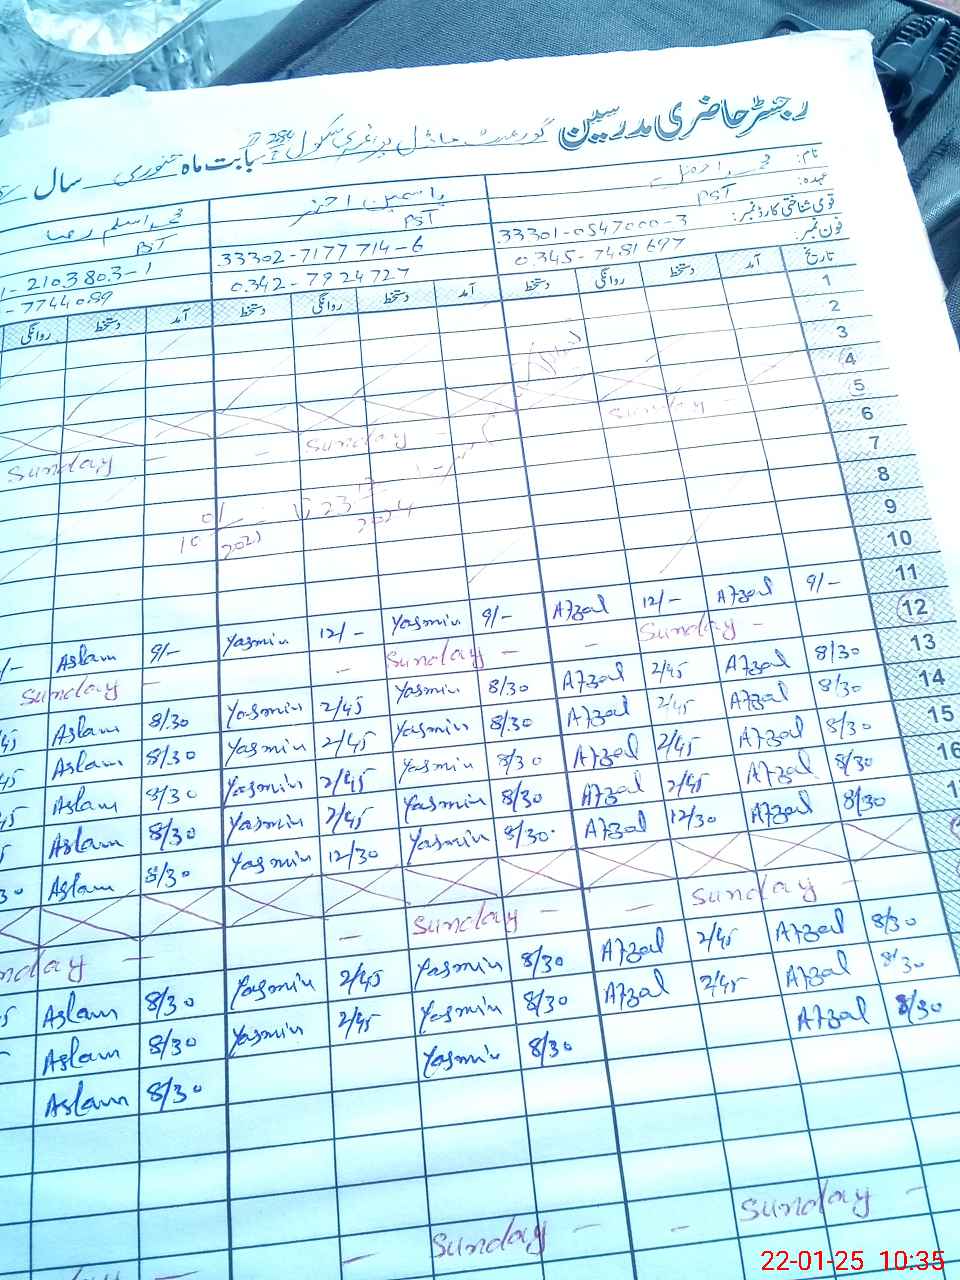 رجسٹر حاضری مدرسین گورنمنٹ ماڈل پرائمری سکول بابت ماہ جنوری سال
نام: محمد افضل یاسمین اختر محمد اسلم رضا
عہدہ: PST PST PST
قومی شناختی کارڈ نمبر: 33301-0547000-3 33302-7177714-6 1-2103803-1
فون نمبر: 0345-7481697 0342-7924727 -7744089
تاریخ آمد دستخط روانگی دستخط آمد دستخط روانگی دستخط آمد دستخط روانگی
1
2
3
4
5 Sunday - Sunday - - Sunday -
6
7
8
9
10
11 9/- Afzal 12/- Afzal 9/- Yasmin 12/- Yasmin 9/- Aslam /-
12 Sunday - - Sunday - - Sunday -
13 8/30 Afzal 2/45 Afzal 8/30 Yasmin 2/45 Yasmin 8/30 Aslam 45
14 8/30 Afzal 2/45 Afzal 8/30 Yasmin 2/45 Yasmin 8/30 Aslam 45
15 8/30 Afzal 2/45 Afzal 8/30 Yasmin 2/45 Yasmin 8/30 Aslam 45
16 8/30 Afzal 2/45 Afzal 8/30 Yasmin 2/45 Yasmin 8/30 Aslam 5
8/30 Afzal 12/30 Afzal 8/30 Yasmin 12/30 Yasmin 8/30 Aslam 30
Sunday - - Sunday - - nday -
8/30 Afzal 2/45 Afzal 8/30 Yasmin 2/45 Yasmin 8/30 Aslam 5
8/30 Afzal 2/45 Afzal 8/30 Yasmin 2/45 Yasmin 8/30 Aslam
8/30 Afzal 8/30 Yasmin 8/30 Aslam
Sunday - - Sunday - -
22-01-25 10:35